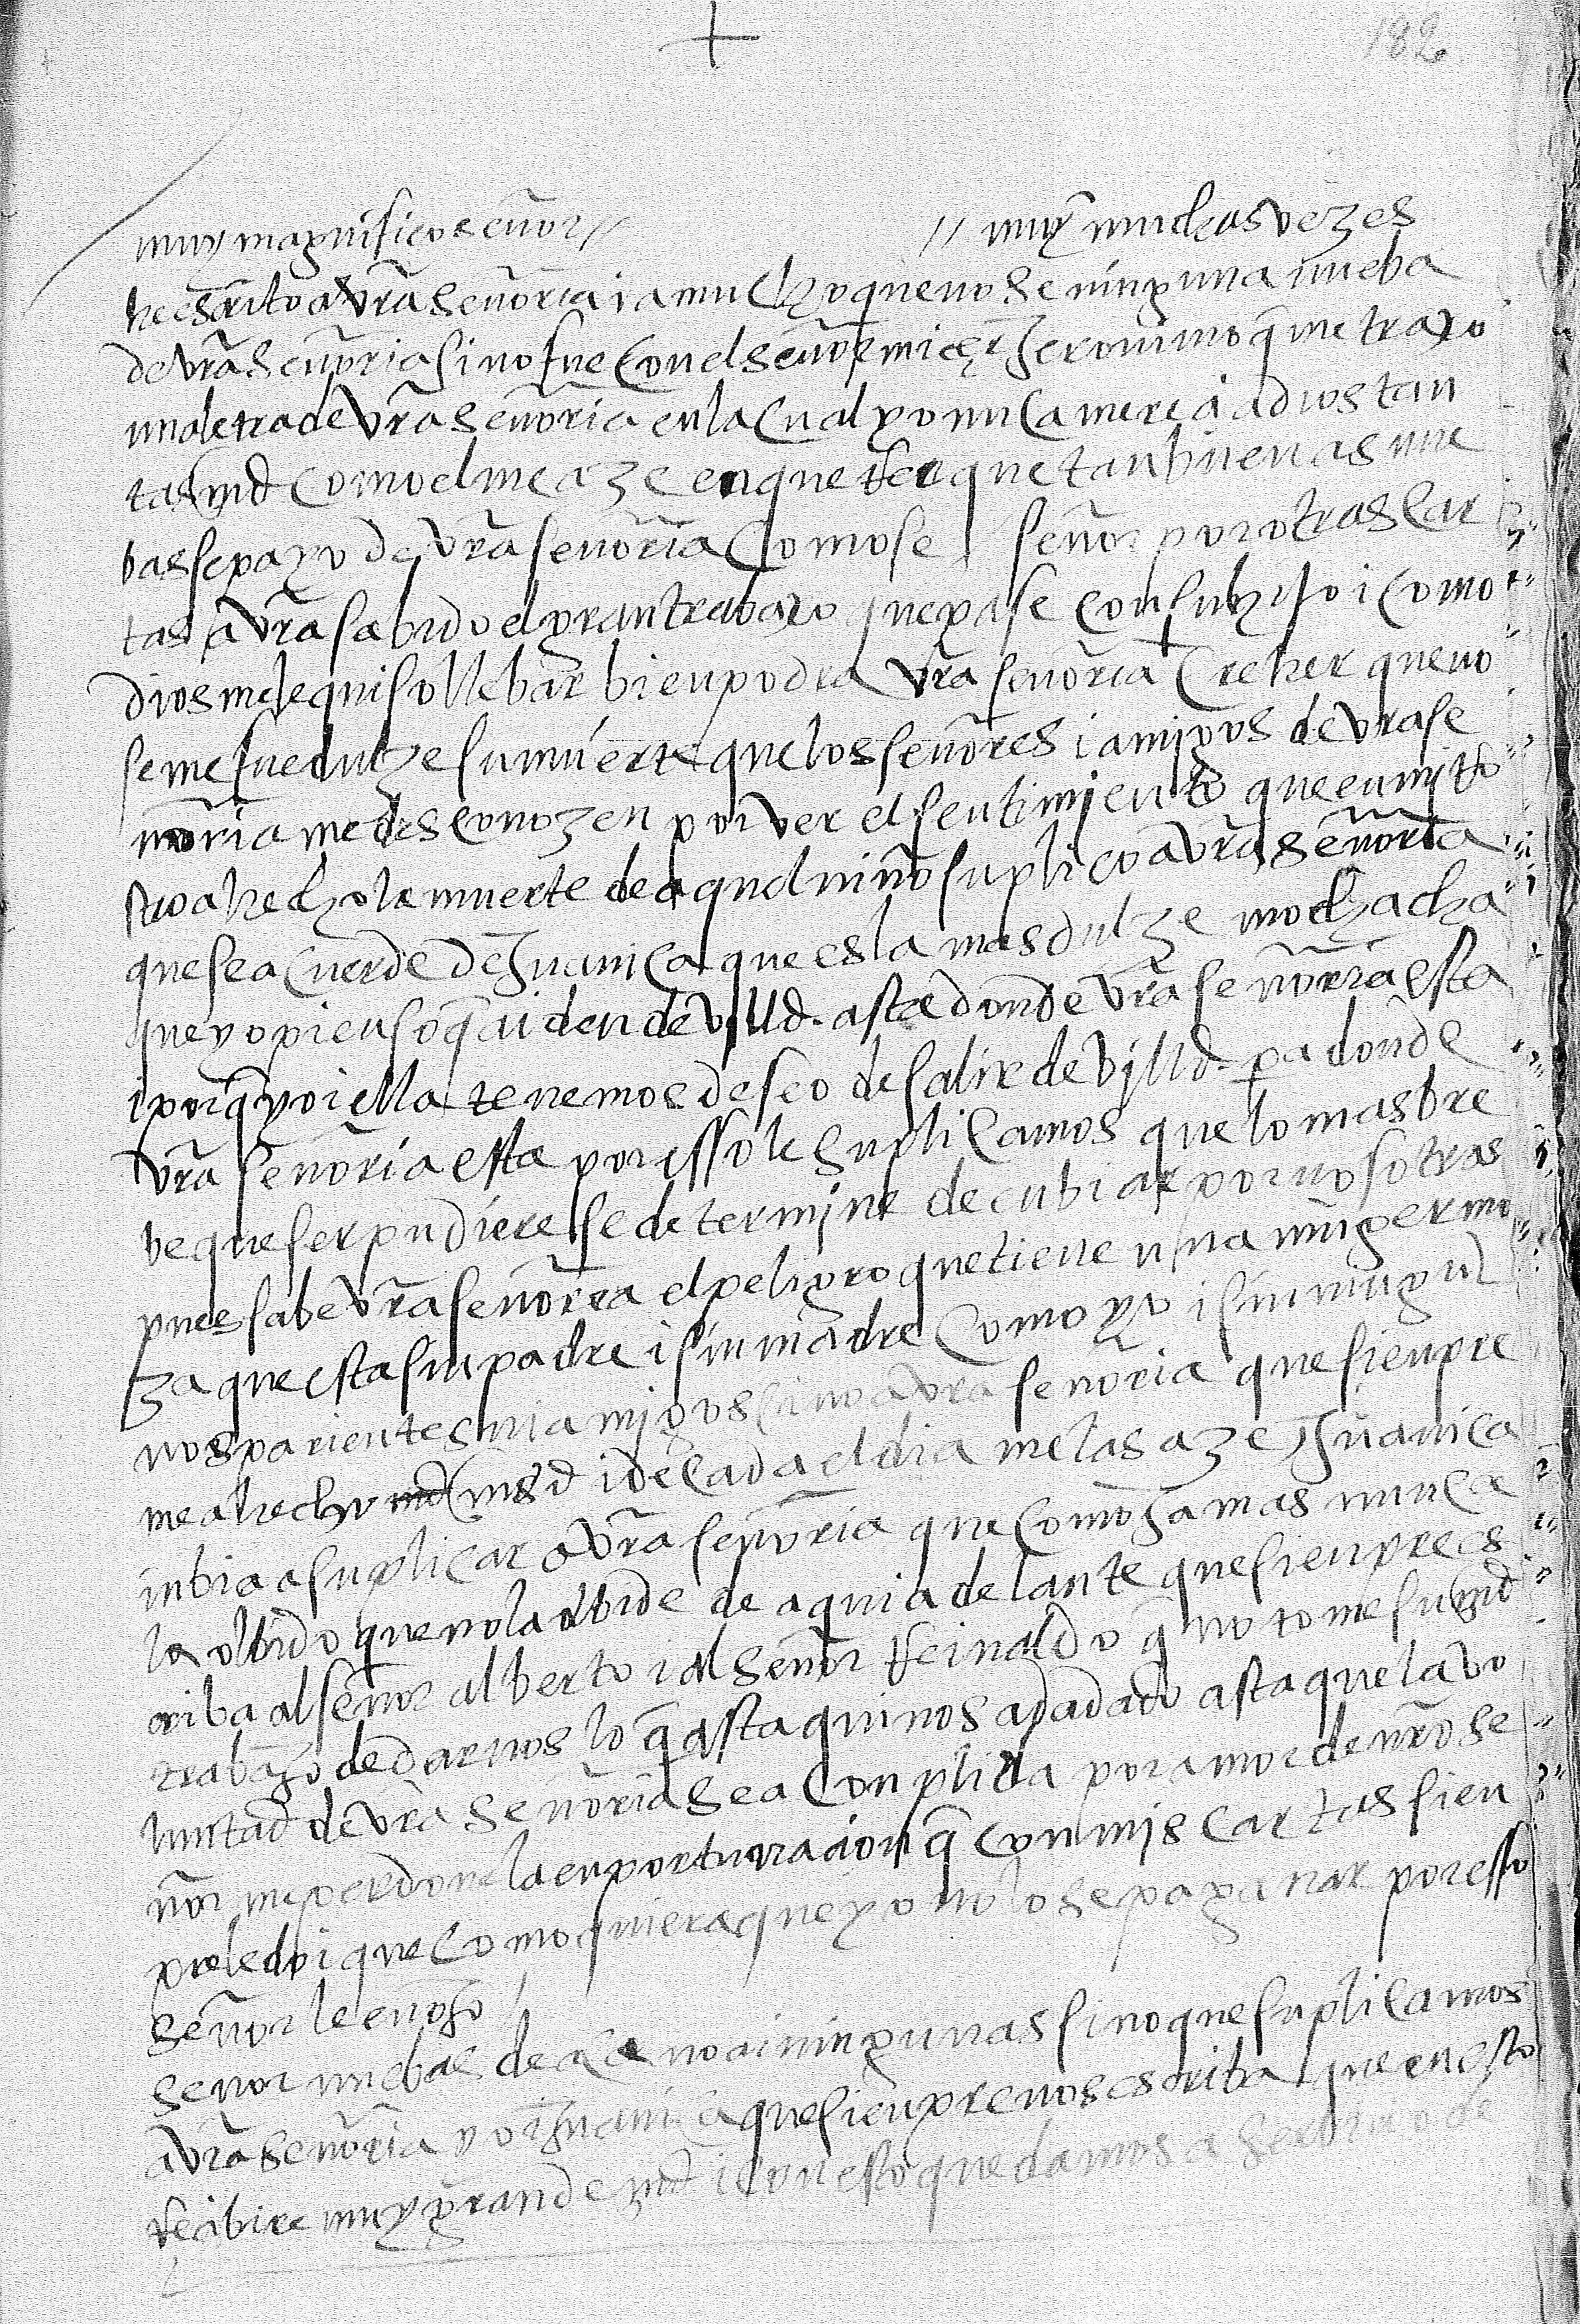 +
182
muy magnifico señor // // muy muchas vezes
he escrito a vrã señoria i a mucho que no se ninguna nueba
de vrã señoria si no fue con el señor miçer Jeronimo q̃ me traxo
una letra de vrã señoria en la cual yo nunca mereci a dios tan
tas md como el me aze en querer que tan buenas nue
bas sepa yo de vrã señoria como se señor por otras car
tas avra sabido el gran trabaxo que pase con su hijo i como
dios me le quiso llebar bien podra vrã señoria creher que no
se me fue dulze su muerte que los señores i amigos de vra se
ñoria me desconozen por ver el sentimiento que en mi ro
stro a hecho la muerte de aquel niño suplico a vrã señoria
que se acuerde de Juanica que es la mas dulze mochacha
que yo pienso q̃ ai den de vlld. asta donde vrã señoria esta
i porq̃ yo i ella tenemos deseo de salir de vlld. pa donde
vrã señoria esta por esso le suplicamos que lo mas bre
be que ser pudiere se determine de enbiar por nosotras
pues sabe vrã señoria el peligro que tiene una muger mo
za que esta sin padre i sin madre como yo i sin ningu
nos parientes ni amigos sino a vra señoria que sienpre
me a hecho md i de cada el dia me las aze Juanica
inbia a suplicar a vrã señoria que como Jamas nunca
la olbido que no la olbide de aqui adelante que sienpre es
criba al señor alberto i al señor Reinaldo q̃ no tome su md
trabaJo de darnos lo q̃ asta qui nos a dadado asta que la bo
luntad de vrã señoria sea conplida por amor de nrõ se
ñor me perdone la enportunacion q̃ con mis cartas sien
pre le doi que como quiera que yo no lo se pa ganar por esso
señor le enoJo
señor nuebas de aca no ai ningunas sino que suplicamos
a vrã señoria yo i Juanica que sienpre nos escriba que en esto
recibire muy grande md i con esto quedamos a serbicio de